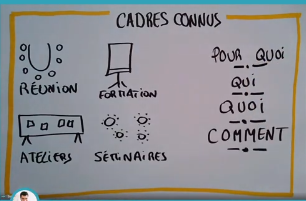 CADRES CONNUS
RÉUNION
FORMATION
ATELIERS
SÉMINAIRES
POUR QUOI
QUI
QUOI
COMMENT